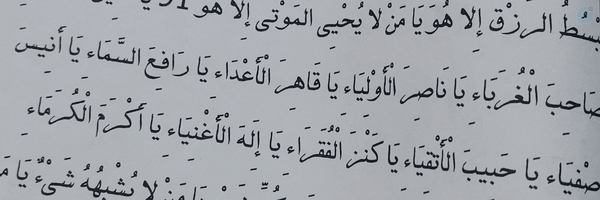 يَبْسُطُ الرِزْقَ إِلا هُوَ يَا مَنْ لا يُحْيِى المَوْتى إِلا هُوَ 91 يَا
صَاحِبَ الْغُرَبَاءِ يَا نَاصِرَ الْأَوْلِيَاءِ يَا قَاهِرَ الْأَعْدَاءِ يَا رَافِعَ السَّمَاءِ يَا أَنِيسَ
صْفِيَاءِ يَا حَبِيبَ الْأَتْقِيَاءِ يَا كَنْزَ الْفُقَرَاءِ يَا إِلهَ الْأَغْنِيَاءِ يَا أَكْرَمَ الْكُرَمَاءِ
مَنْ لا يُشْبِهُهُ شَىْءٌ يَا